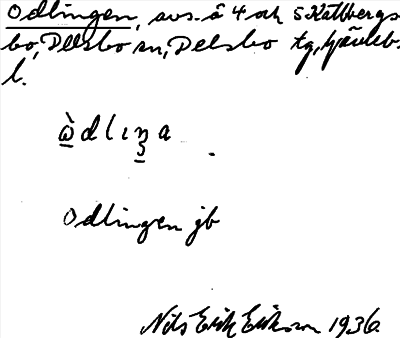 Odlingen, avs. å 4 och 5 Kättbergs-
bo, Delsbo sn, Delsbo tg, Gävleb.
l.
Odlingen jb
Nils Erik Erikson 1936